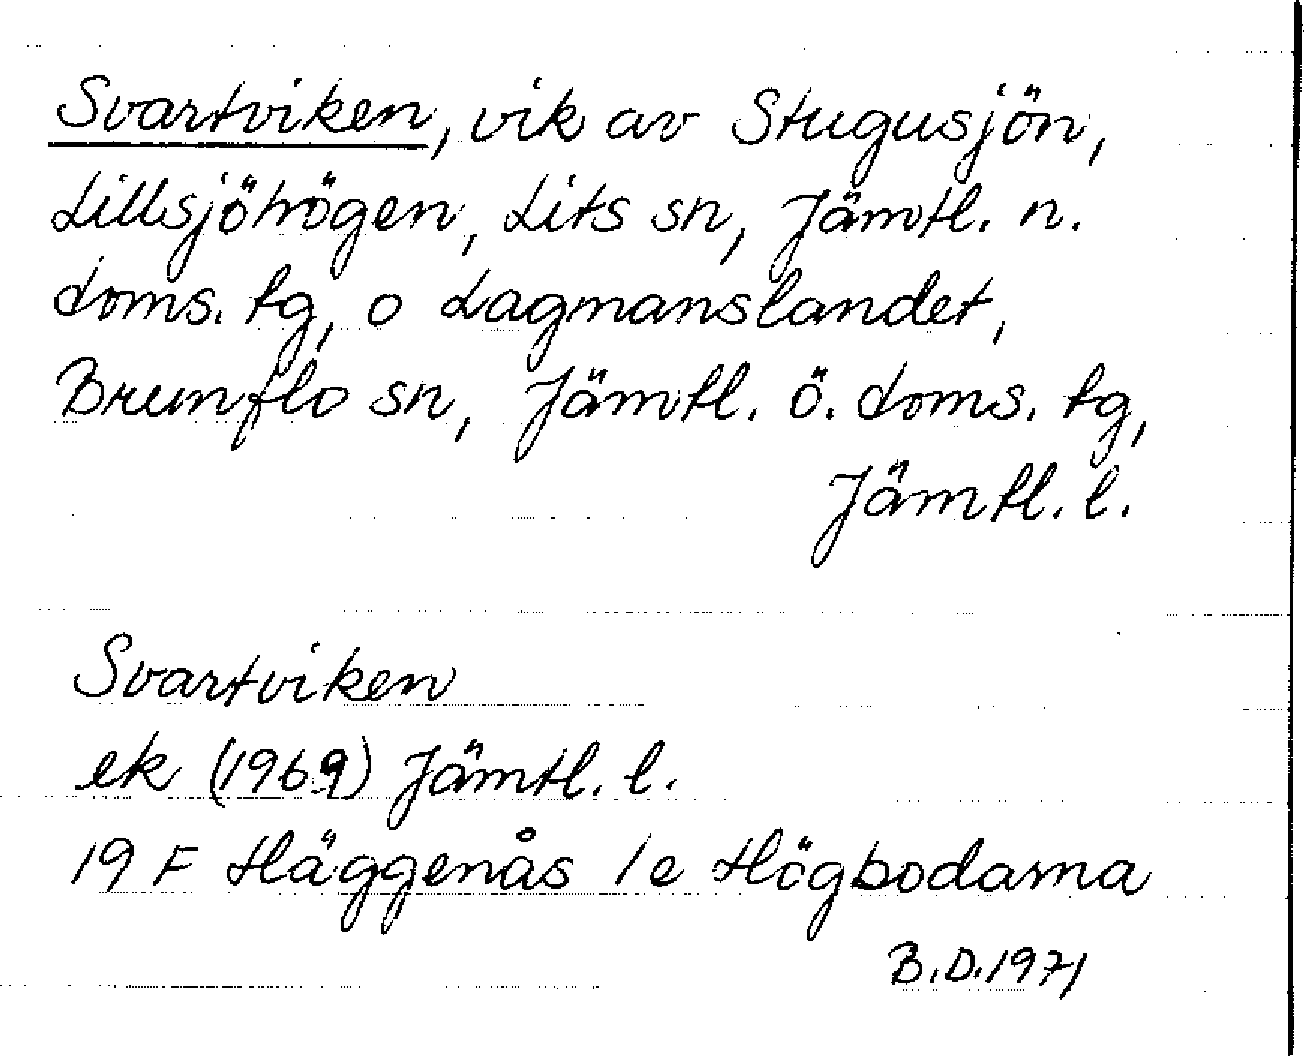 Svartviken, vik av Stugusjön,
Lillsjöhögen, Lits sn, Jämtl. n.
doms. tg, o Lagmanslandet,
Brunflo sn, Jämtl. ö. doms. tg,
Jämtl. l.
Svartviken
ek (1969) Jämtl. l.
19 F Häggenås 1e Högbodarna
B.D.1971